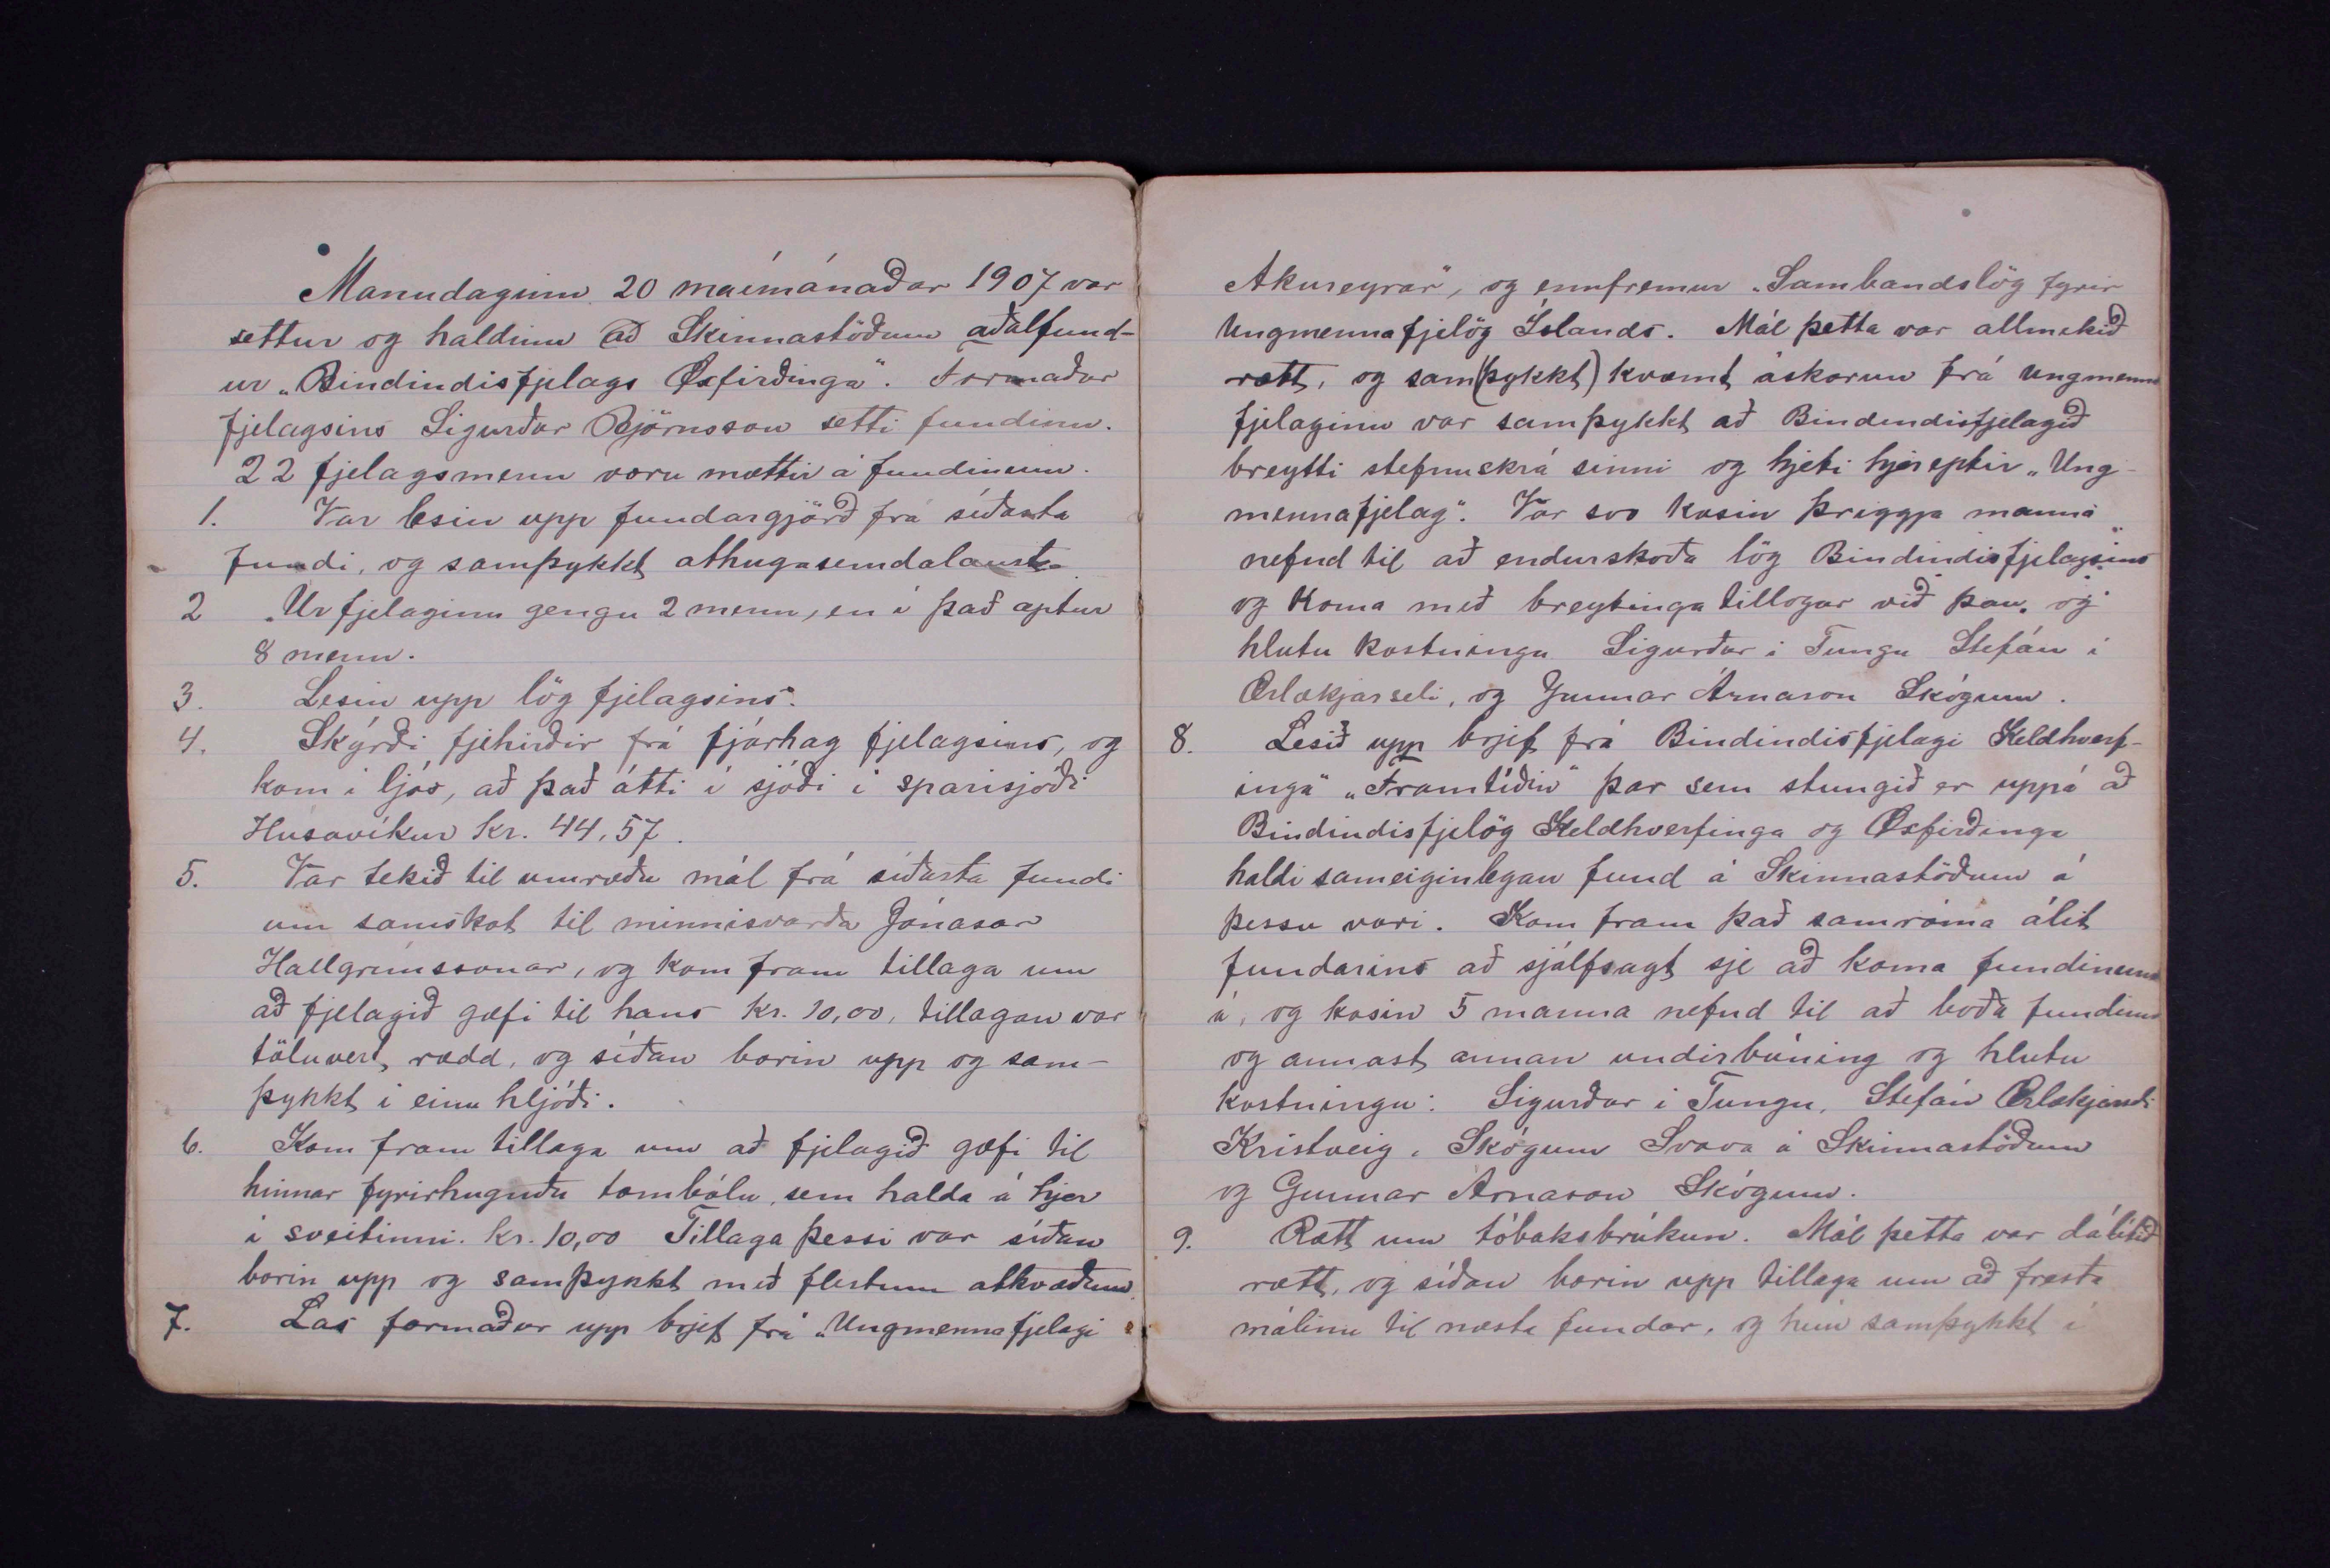 Manudaginn 20 maímánaðar 1907 var
settur og haldinn að Skinnastöðum aðalfund-
ur „Bindindisfjelags Öxfirðinga". Formaður
fjelagsins Sigurður Björnsson setti fundinn.
22 fjelagsmenn voru mættir á fundinum.
1. Var lesin upp fundargjörð frá síðasta
fundi, og samþykkt athugasemdalaust.
2 Úr fjelaginu gengu 2 menn, en í það aptur
8 menn.
3. Lesin upp lög fjelagsins.
4. Skýrði fjehirðir frá fjárhag fjelagsins, og
kom í ljós, að það átti í sjóði í sparisjóði
Husavíkur kr. 44,57.
5. Var tekið til umræðu mál frá síðasta fundi
um samskot til minnisvarða Jónasar
Hallgrímssonar, og kom fram tillaga um
að fjelagið gæfi til hans kr. 10,00, tillagan var
töluvert rædd, og síðan borin upp og sam-
þykkt í einu hljóði.
6. Kom fram tillaga um að fjelagið gæfi til
hinnar fyrirhuguðu tombólu, sem halda á hjer
í sveitinni. kr. 10,00 Tillaga þessi var síðan
borin upp og samþykkt með flestum atkvæðum.
7. Las formaður upp brjef frá „Ungmennafjelagi
Akureyrar", og ennfremur „Sambandslög fyrir
Ungmennafjelög Íslands. Mál þetta var allmikið
rætt, og sam(þykkt) kvæmt áskorun frá Ungmenna
fjelaginu var samþykkt að Bindindisfjelagið
breytti stefnuskrá sinni og hjeti hjereptir „Ung-
mennafjelag". Var svo kosin þriggja manna
nefnd til að endurskoða lög Bindindisfjelagsins
og koma með breytinga tillögur við þau, og
hlutu kostningu Sigurður í Tungu Stefán í
Ærlækjarseli, og Gunnar Árnason Skógum.
8. Lesið upp brjef frá Bindindisfjelagi Keldhverf-
inga" „Framtíðin" þar sem stungið er uppá að
Bindindisfjelög Keldhverfinga og Öxfirðinga
haldi sameiginlegan fund á Skinnastöðum á
þessu vori. Kom fram það samróma álit
fundarins að sjálfsagt sje að koma fundinum
á, og kosin 5 manna nefnd til að boða fundinn
og annast annan undirbúning og hlutu
kostningu: Sigurður í Tungu, Stefán Ærlækjarseli
Kristveig, Skógum Svava á Skinnastöðum
og Gunnar Arnason Skógum.
9. Rætt um tóbaksbrúkun. Mál þetta var dálítið
rætt, og síðan borin upp tillaga um að fresta
málinu til næsta fundar, og hún samþykkt í